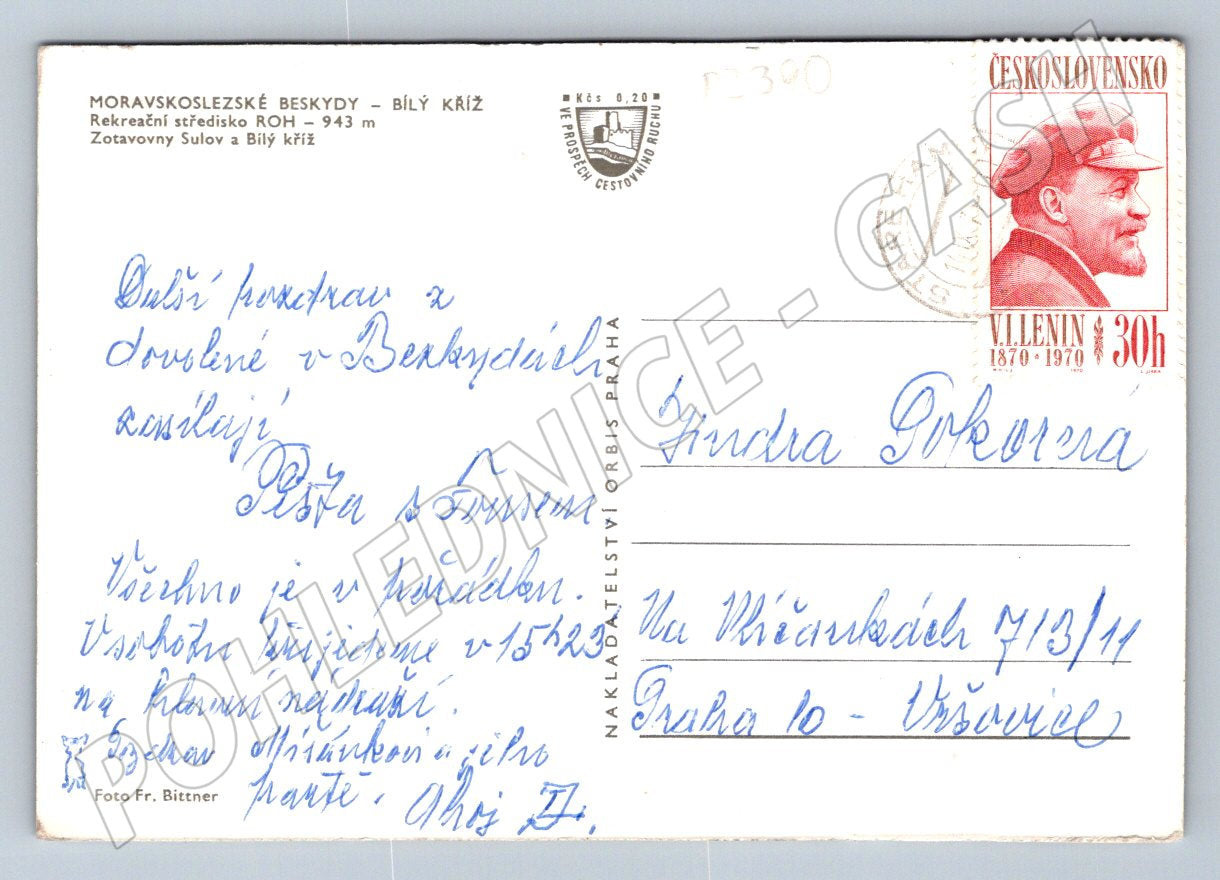 MORAVSKOSLEZSKÉ BESKYDY – BÍLÝ KŘÍŽ
Rekreační středisko ROH – 943 m
Zotavovny Sulov a Bílý kříž
Kčs 0,20
VE PROSPĚCH CESTOVNÍHO RUCHU
ČESKOSLOVENSKO
V.I.LENIN
1870 · 1970
30h
Další pozdrav z
dovolené v Beskydech
zasílají
Péťa s
Všechno je v pořádku.
V sobotu přijedeme v 15h23
na hlavní nádraží.
Pozdrav a jeho
partě. Ahoj
Foto Fr. Bittner
NAKLADATELSTVÍ ORBIS PRAHA
Jindra Pokorná
Na Vlčankách 713/11
Praha 10 – Vršovice
POHLEDNICE - GASH